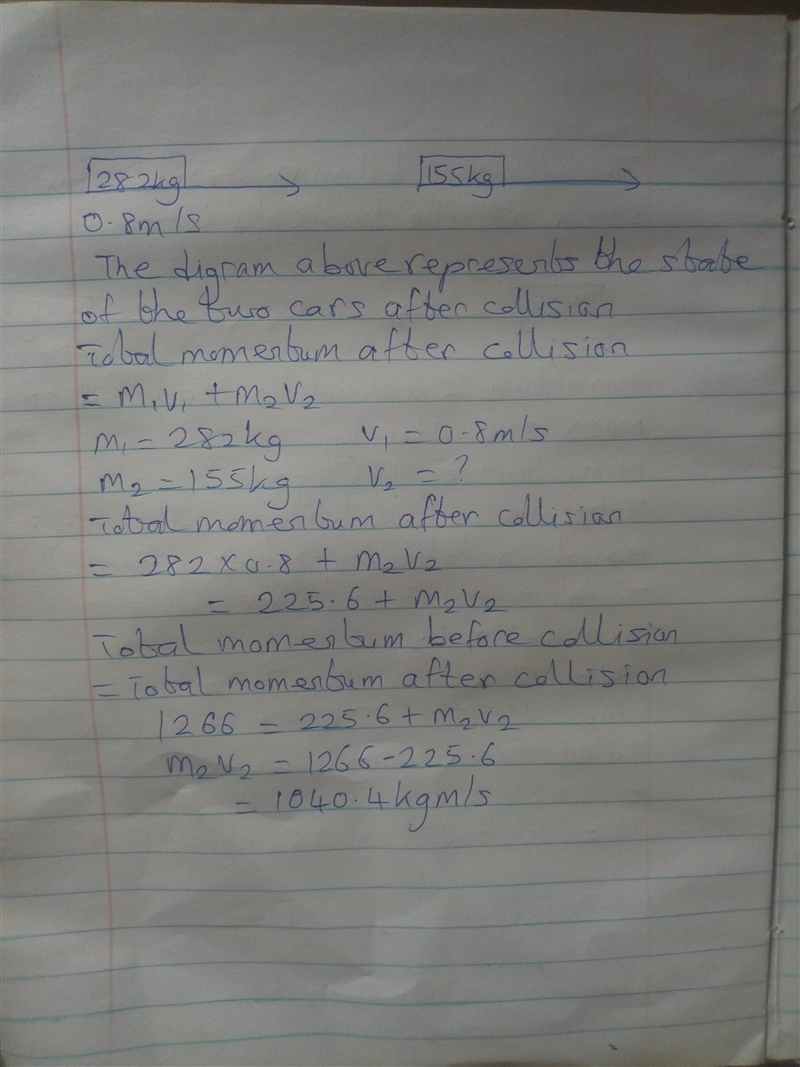 282kg 155kg
0.8m/s
The digram above represents the state
of the two cars after collision
Total momentum after collision
= m₁v₁ + m₂v₂
m₁ = 282kg v₁ = 0.8m/s
m₂ = 155kg v₂ = ?
Total momentum after collision
= 282 × 0.8 + m₂v₂
= 225.6 + m₂v₂
Total momentum before collision
= Total momentum after collision
1266 = 225.6 + m₂v₂
m₂v₂ = 1266 - 225.6
= 1040.4kgm/s